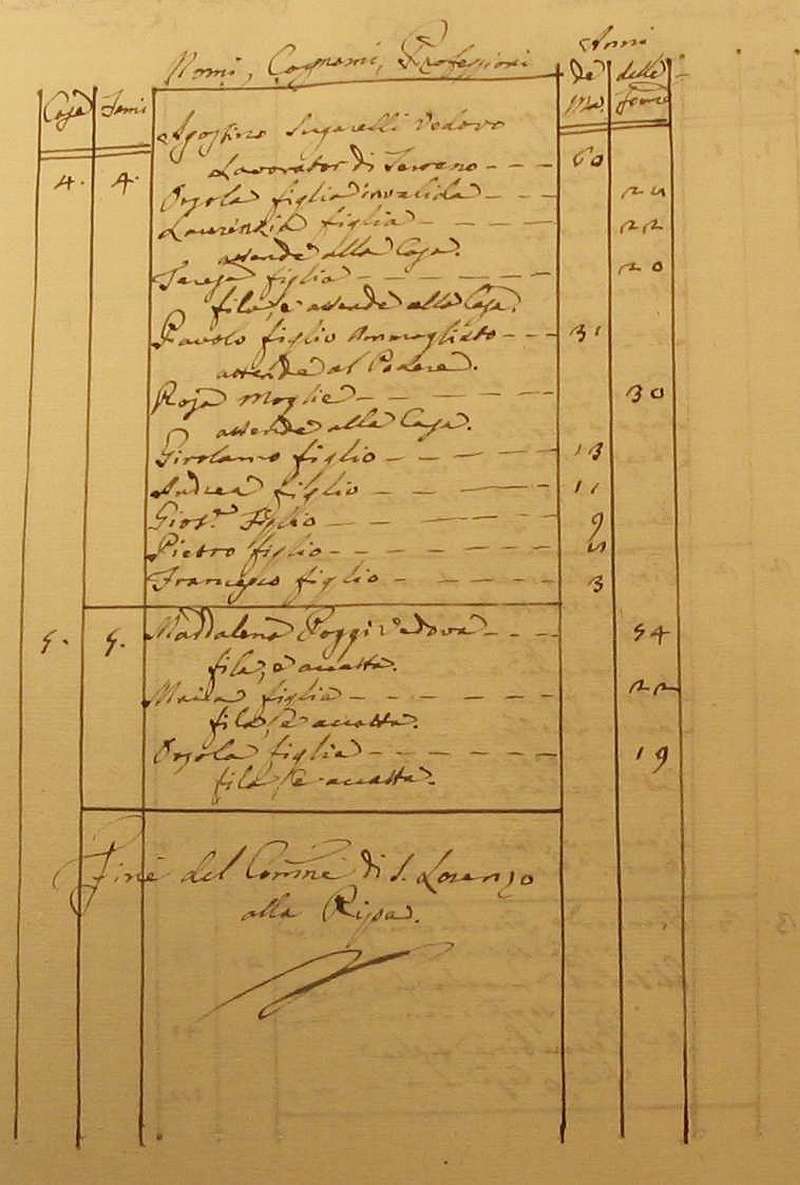 Nomi, Cognomi, Professioni
Anni
Case Fami
de Ma. delle Fem̃e
Agostino Sugarelli Vedovo
4. 4. Lavorator di Terreno - - - 60
Orsola figlia invalida - - - 25
Laurenzia figlia - - - - 22
attende alla Casa.
Teresa figlia - - - - - 20
fila, e attende alla Casa.
Pavolo figlio Ammogliato - - - 31
attende al Podere.
Rosa Moglie - - - - - 30
attende alla Casa.
Girolamo figlio - - - - 13
Andrea figlio - - - 11
Gios.e figlio - - - - 9
Pietro figlio - - - - - 5
Francesco figlio - - - - 3
5. 5. Maddalena Poggi Vedova - - - 54
fila, e accatta.
Maria figlia - - - - - 22
fila, e accatta.
Orsola figlia - - - - - 19
fila, e accatta.
Fine del Com̃e di S. Lorenzo
alla Ripa.